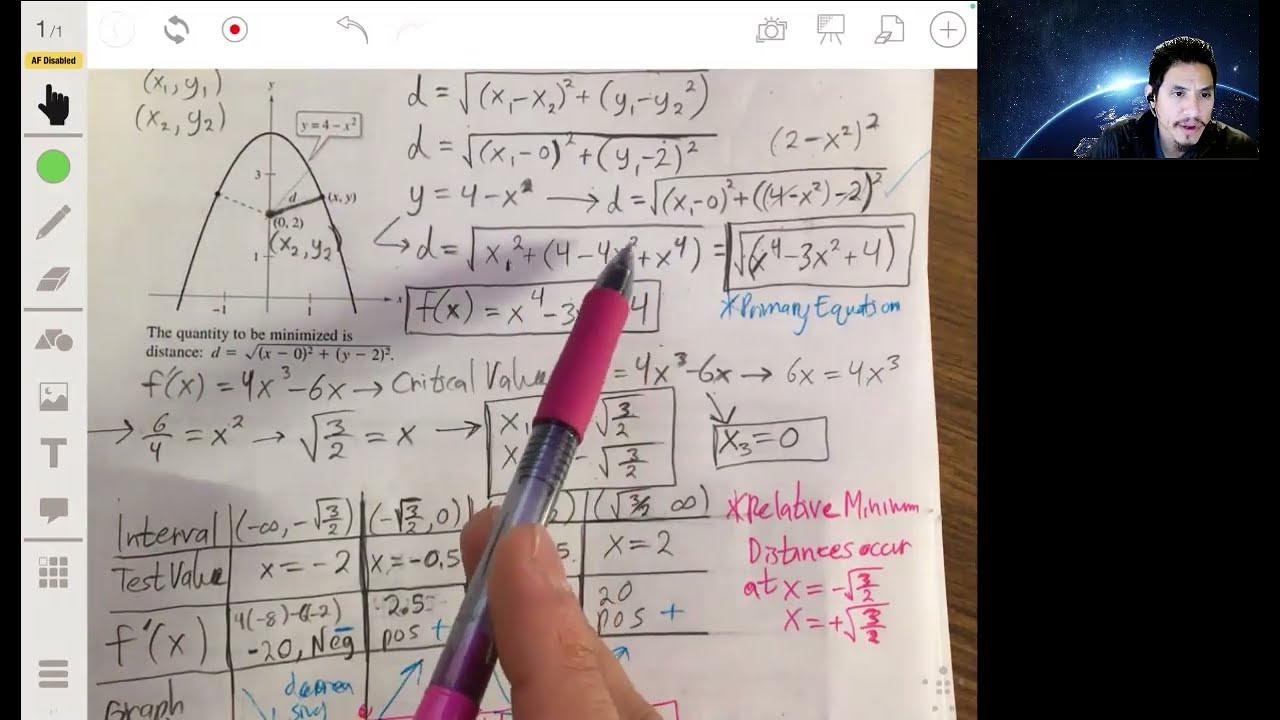 1/1
AF Disabled
(x₁, y₁)
(x₂, y₂)
y
y = 4 − x²
3
d
(x, y)
(0, 2)
(x₂, y₂
1
x
−1
1
The quantity to be minimized is
distance: d = √(x − 0)² + (y − 2)².
d = √(x₁−x₂)² + (y₁−y₂²)
d = √(x₁−0)² + (y₁−2)²
(2−x²)²
y = 4−x² → d = √(x₁−0)² + ((4−x²)−2)²
→ d = √x₁² + (4−4x²+x⁴) = √(x⁴−3x²+4)
f(x) = x⁴−3 4
*Primary Equation
f'(x) = 4x³−6x → Critical Value = 4x³−6x → 6x = 4x³
→ 6/4 = x² → √3/2 = x →
x √3/2
x − √3/2
x₃=0
Interval (−∞, −√3/2) (−√3/2, 0) (√3/2 ∞)
Test Value x = −2 x = −0.5 5. x = 2
f'(x) 4(−8)−6(−2) −20, Neg − 2.5 pos + 20 pos +
Graph
decrea
sing
*Relative Minimum
Distances occur
at x = −√3/2
x = +√3/2
T